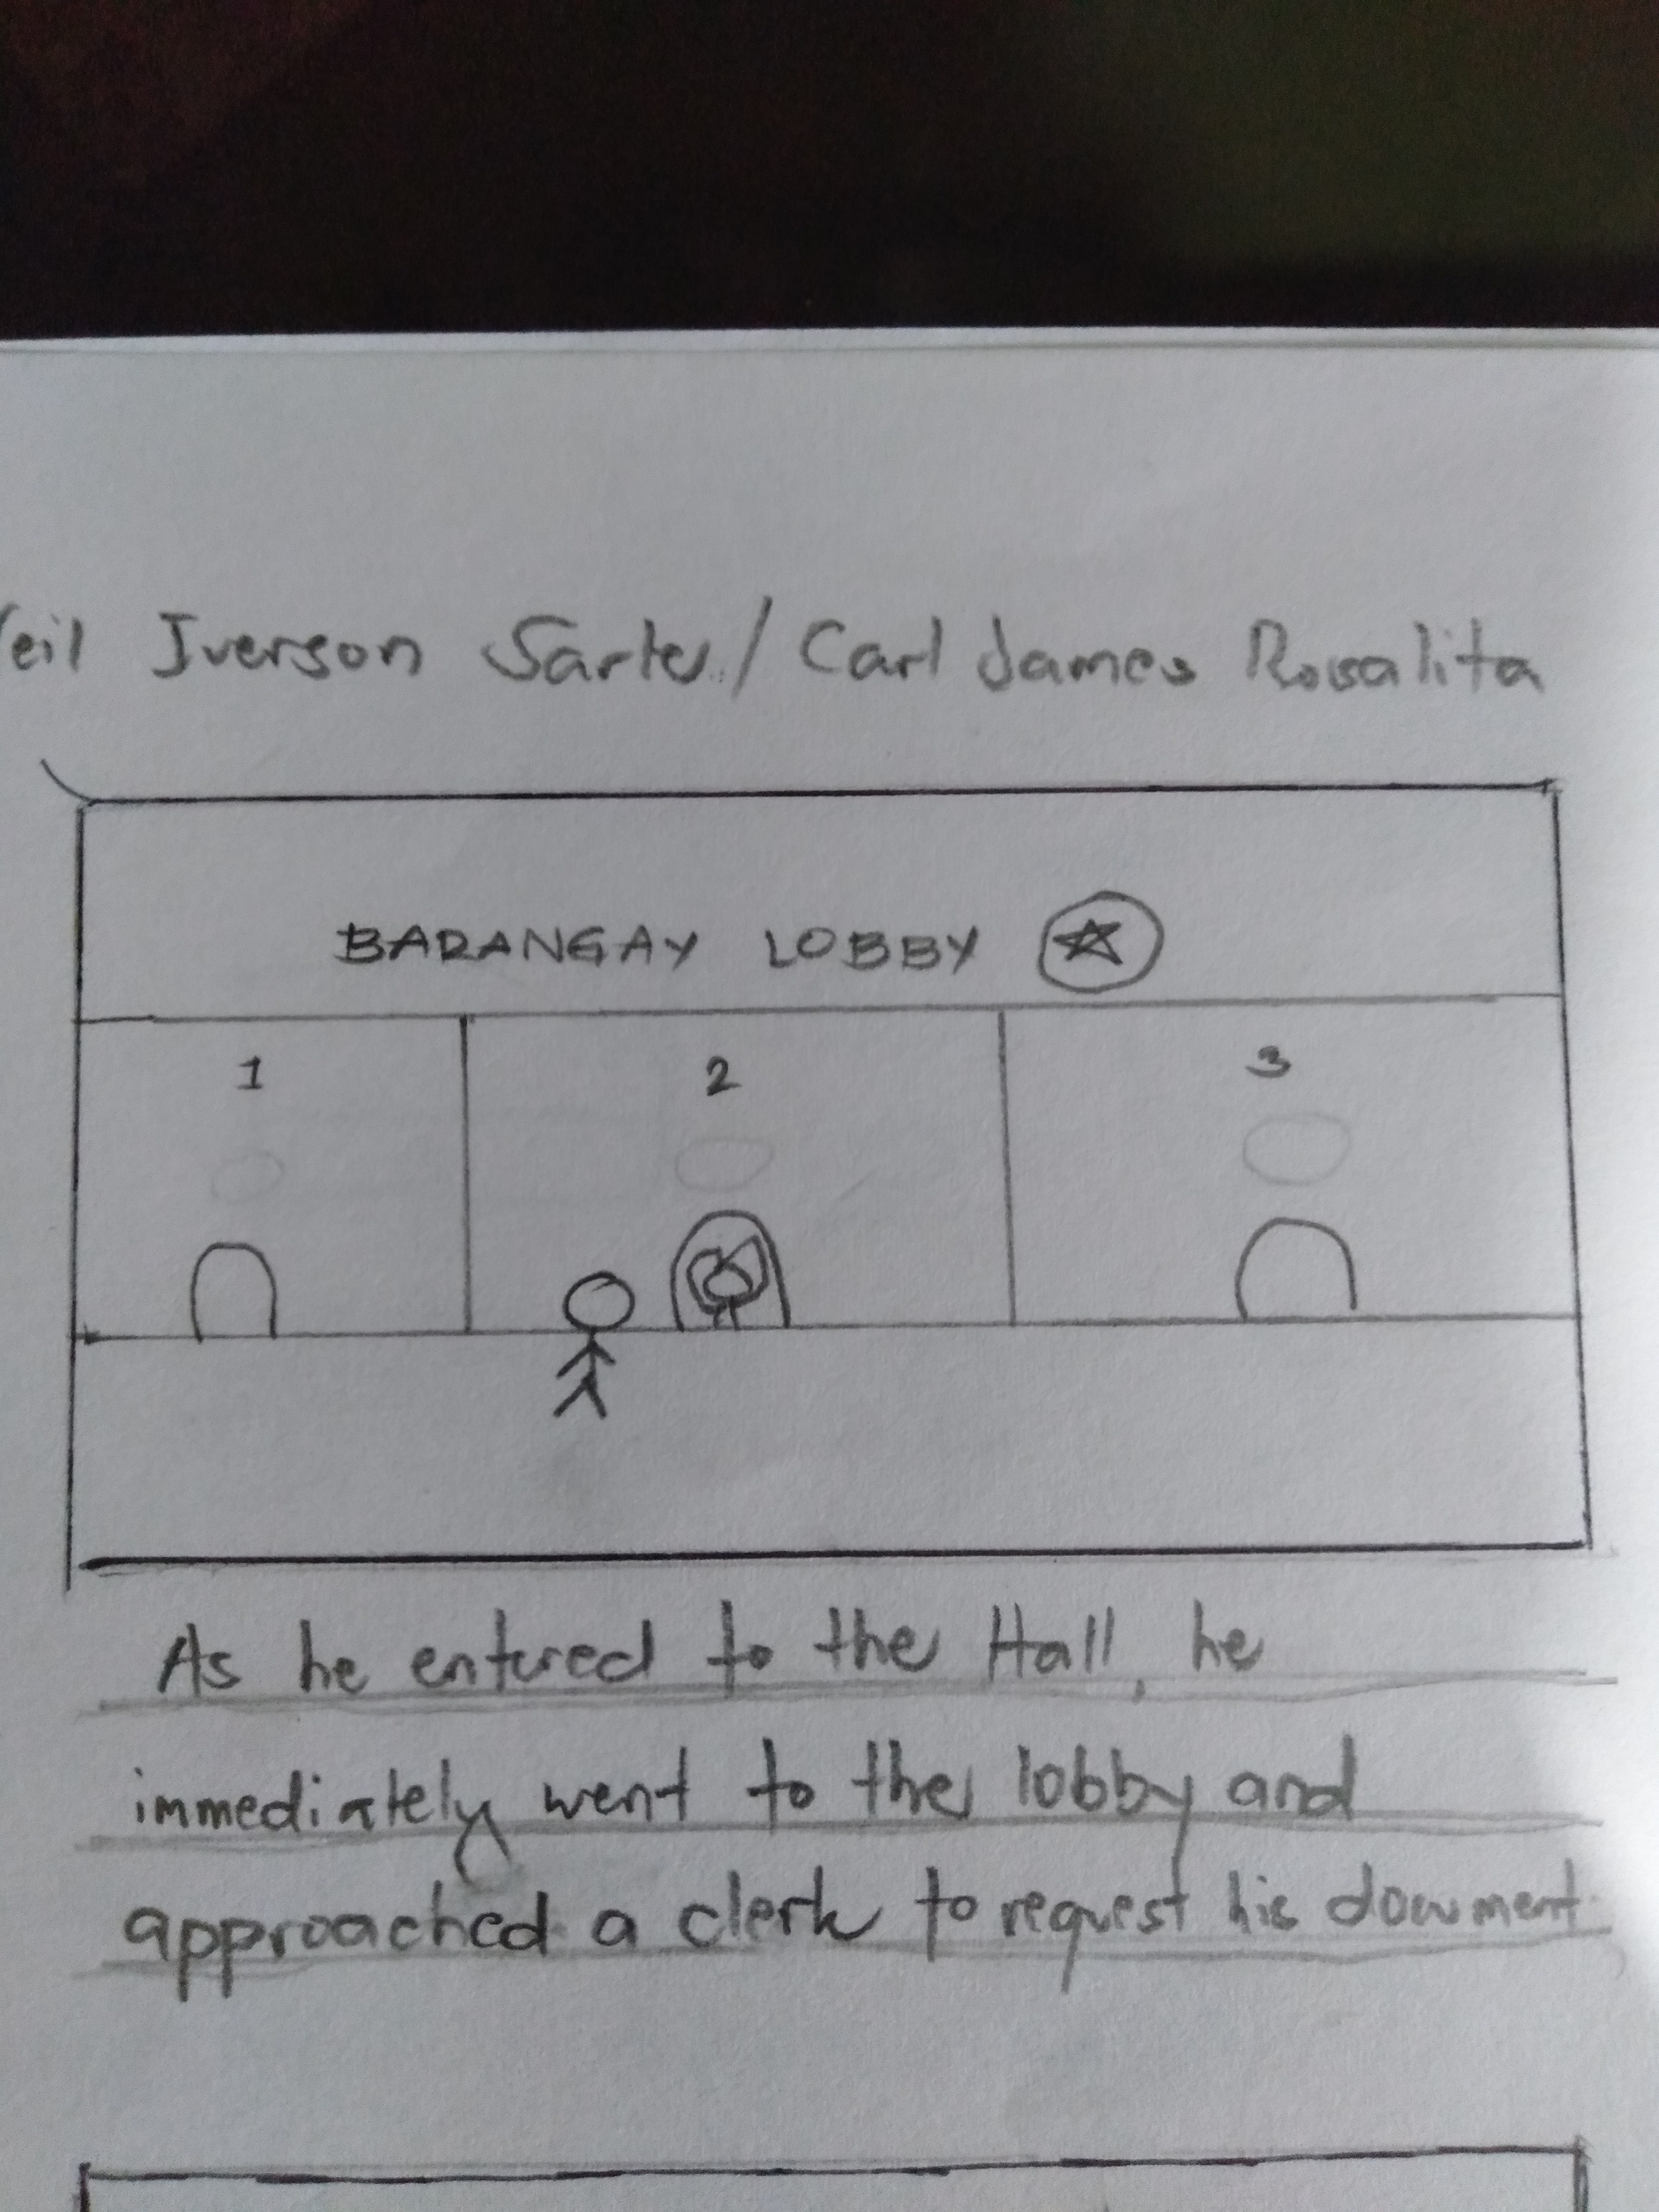 Iverson Sarte / Carl James Rosalita
BARANGAY LOBBY
1 2 3
As he entered to the Hall, he
immediately went to the lobby and
approached a clerk to request his document